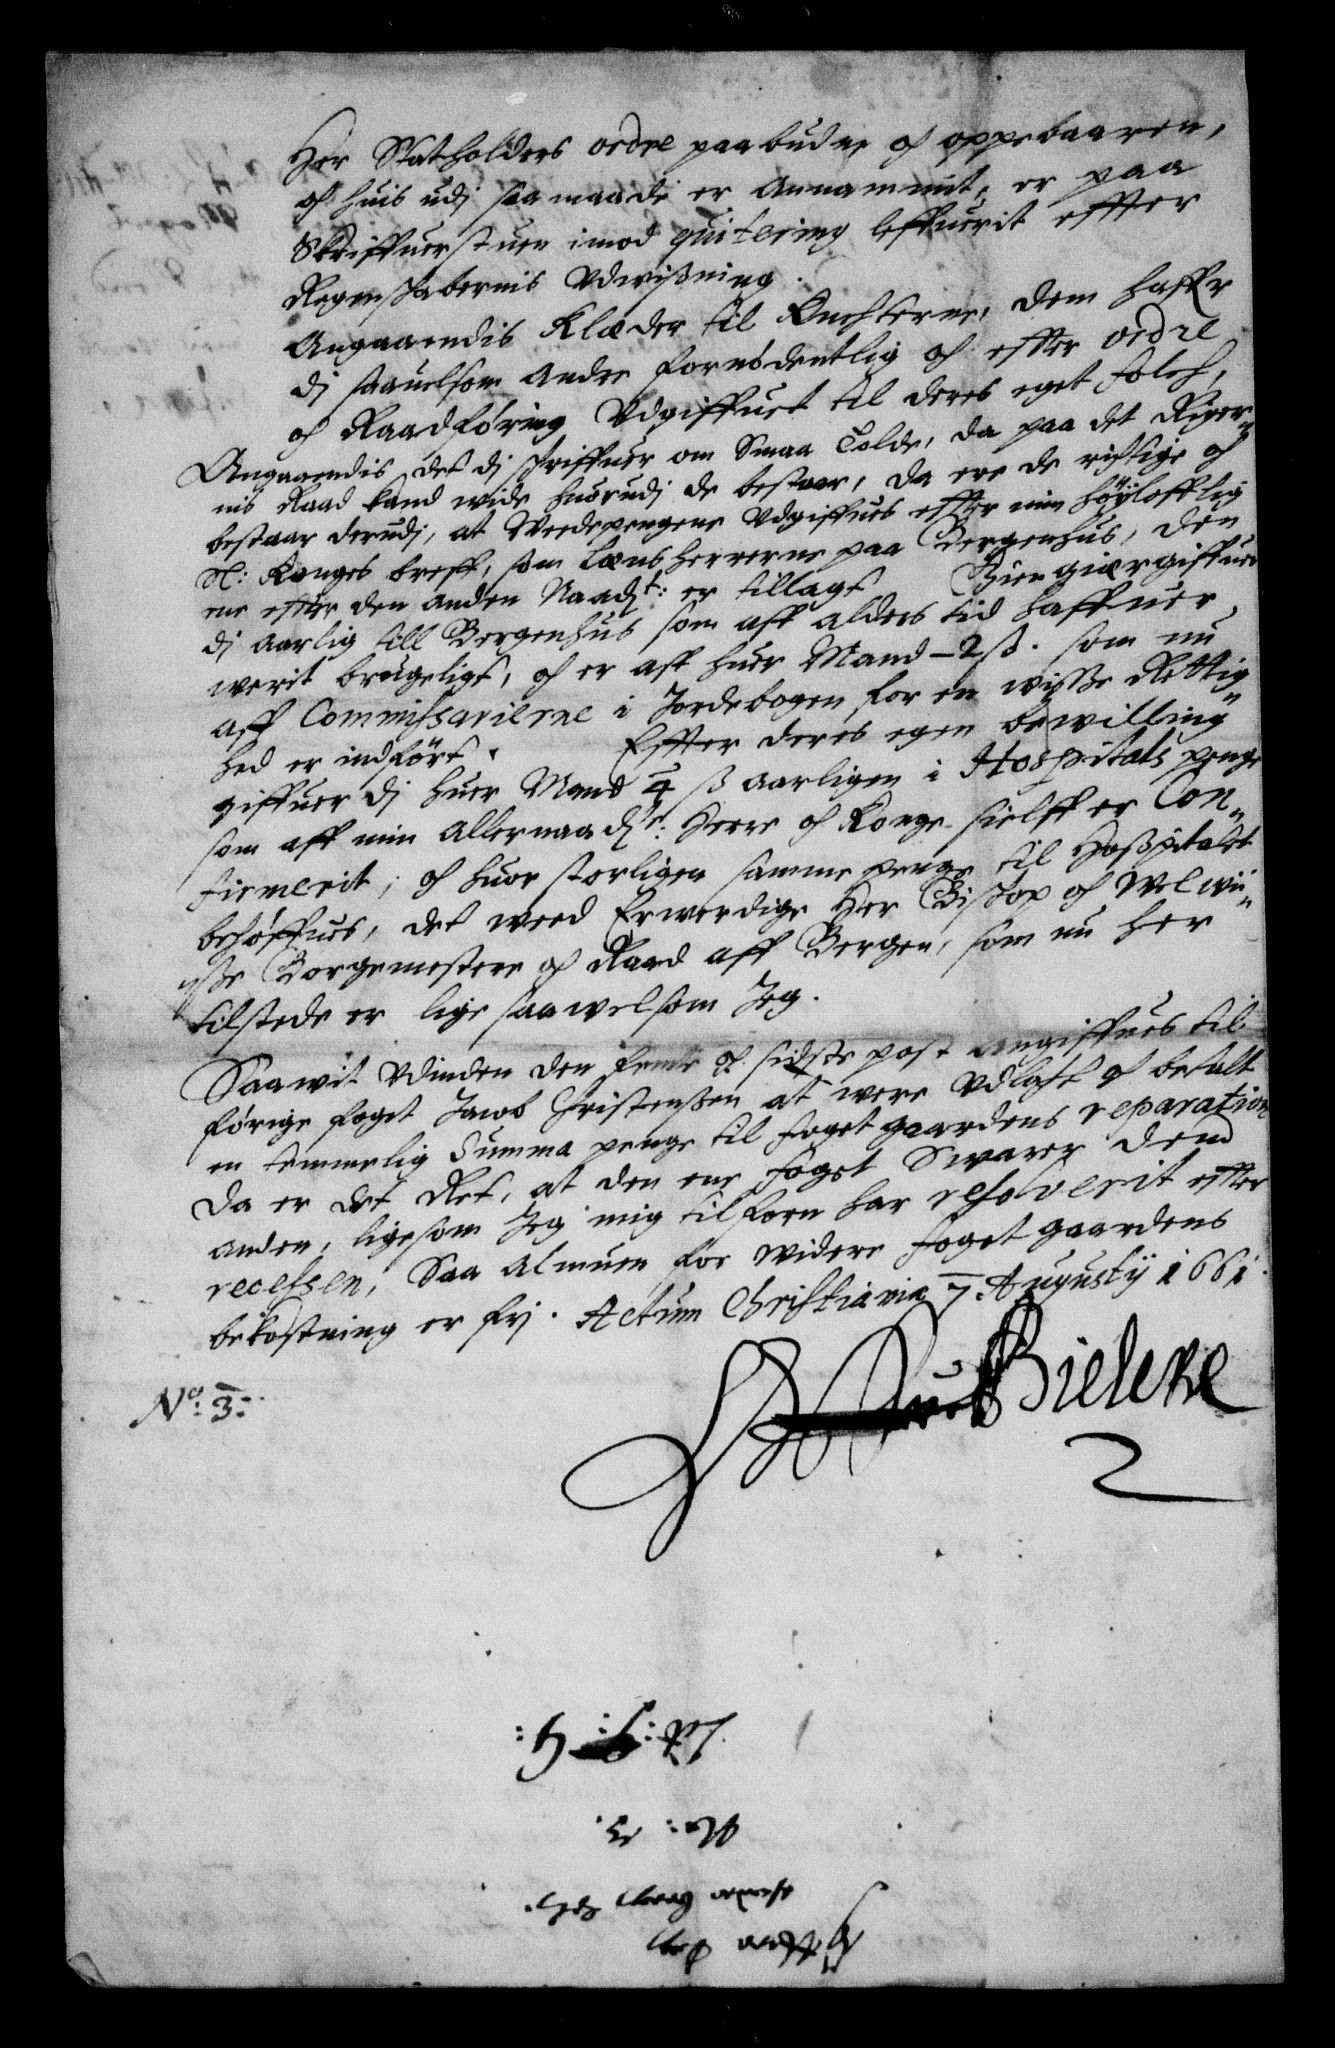 Her Statholders ordre paabudne och oppebaaren,
och huis udj saa maade er Annammit, er paa
Skriffuerstuen imod quitering leffuerit effter
Regenskabernis Udwißning.
Angaaendis Klæder til Knechterne, dem haffr
dj saauelsom andre fornødentlig och effter ordre
och Raadføring Udgiffuet til deres eget folch,
Angaaendis det dj skriffuer om Smaa Tolde, da paa det Riger„
nis Raad kand wide huorudj de bestaar, da ere de richtige och
bestaar derudj, at Weedepengene Udgiffues effter min Høylofflig
H: Konges breff, som Lænsherrerne paa Bergenhus, den
ene effter den anden Naadst: er tillagt Giengiergiffuer
dj aarlig till Bergenhus som aff alders tid haffuer
werit brugeligt, och er aff huer Mand – 2 ß. som nu
aff Commissarierne i Jordebogen for en wisse Rettig„
hed er indført. Effter deres egen bewilling
giffuer dj huer Mand 4 ß aarligen i Hospitals penge
som aff min allernaadste: Herre och Konge sielff er Con„
firmerit; och huor storligen samme penge til Hoßpitalet
behøffues, det weed Erwerdige Her Bischop och Welwii„
sße Borgemestere och Raad aff Bergen, som nu her
tilstede er lige saawelsom Jeg.
Saawit Udinden den femte och sidste post angiffues til
førige foget Jacob Christensßen at were Udlagt och betalt
en temmelig Summa penge til foget gaardens reparation
Da er det Ret, at den ene foget Swarer dend
anden, ligesom Jeg mig tilforn har resolverit effter
recessen, Saa Almuen for widere foget gaardens
bekostning er frj. Actum Christiania 7 Augustij 1661.
Bielcke
No: 3:
No: 3.